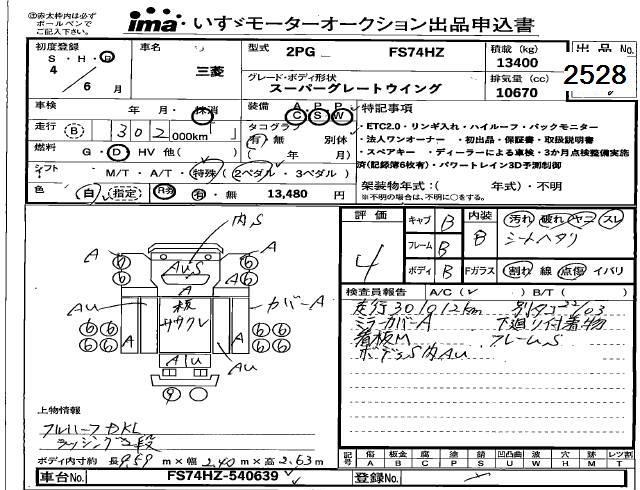 ⓪赤太枠内は必ず
ボールペンで
ご記入下さい。
ima いすゞモーターオークション出品申込書
初度登録 S・H・R 4 6 月
車名 三菱
型式 2PG FS74HZ
積載 (kg) 13400
出品No. 2528
グレード・ボディ形状 スーパーグレートウイング
排気量 (cc) 10670
車検 年 月・抹消
装備 A C P S P W
特記事項
走行 (B) 302 000km
タコグラフ 有・無 別体
( 年 月)
燃料 G・D HV 他( )
・ETC2.0・リンギ入れ・ハイルーフ・バックモニター
・法人ワンオーナー ・初出品・保証書・取扱説明書
・スペアキー ・ディーラーによる車検・3か月点検整備実施
済(記録簿6枚有)・パワートレイン3D予測制御
シフト M/T・A/T・特殊(2ペダル・3ペダル)
色 白(指定) R券 有・無 13,480 円
架装物年式:( 年式)・不明
※不明の場合は、不明に○をする。
内S
A A
AUS
A
AU 板 ササクレ カバーA
A A
AU
AU
6 6 6 6
6 6 6 6
9
評価 4
キャブ B
フレーム B
ボディ B
内装 B
汚れ 破れ ヤコ スレ
シートヘタリ
Fガラス 割れ 線 点傷 イバリ
検査員報告 A/C(✓) B/T( )
走行301912km 別タコ22/03
ミラーカバーA 下廻り付着物
看板M フレームS
ボデーS内AU
上物情報
フルハーフDKL
ラッシング2段
ボディ内寸約 長9.59m×幅2.40m×高2.63m
記号 傷A 板金B 腐C 塗P 錆S 凹凸曲U 波W 穴H 跡M 汚T レツ割
車台No. FS74HZ-540639
登録No.